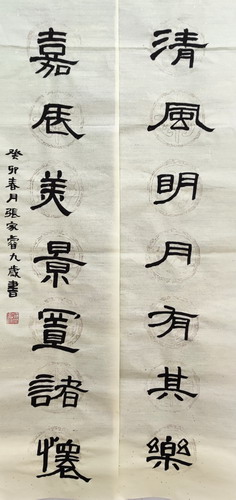 清風明月有其樂
嘉辰美景置諸懷
癸卯春月張家睿九歲書